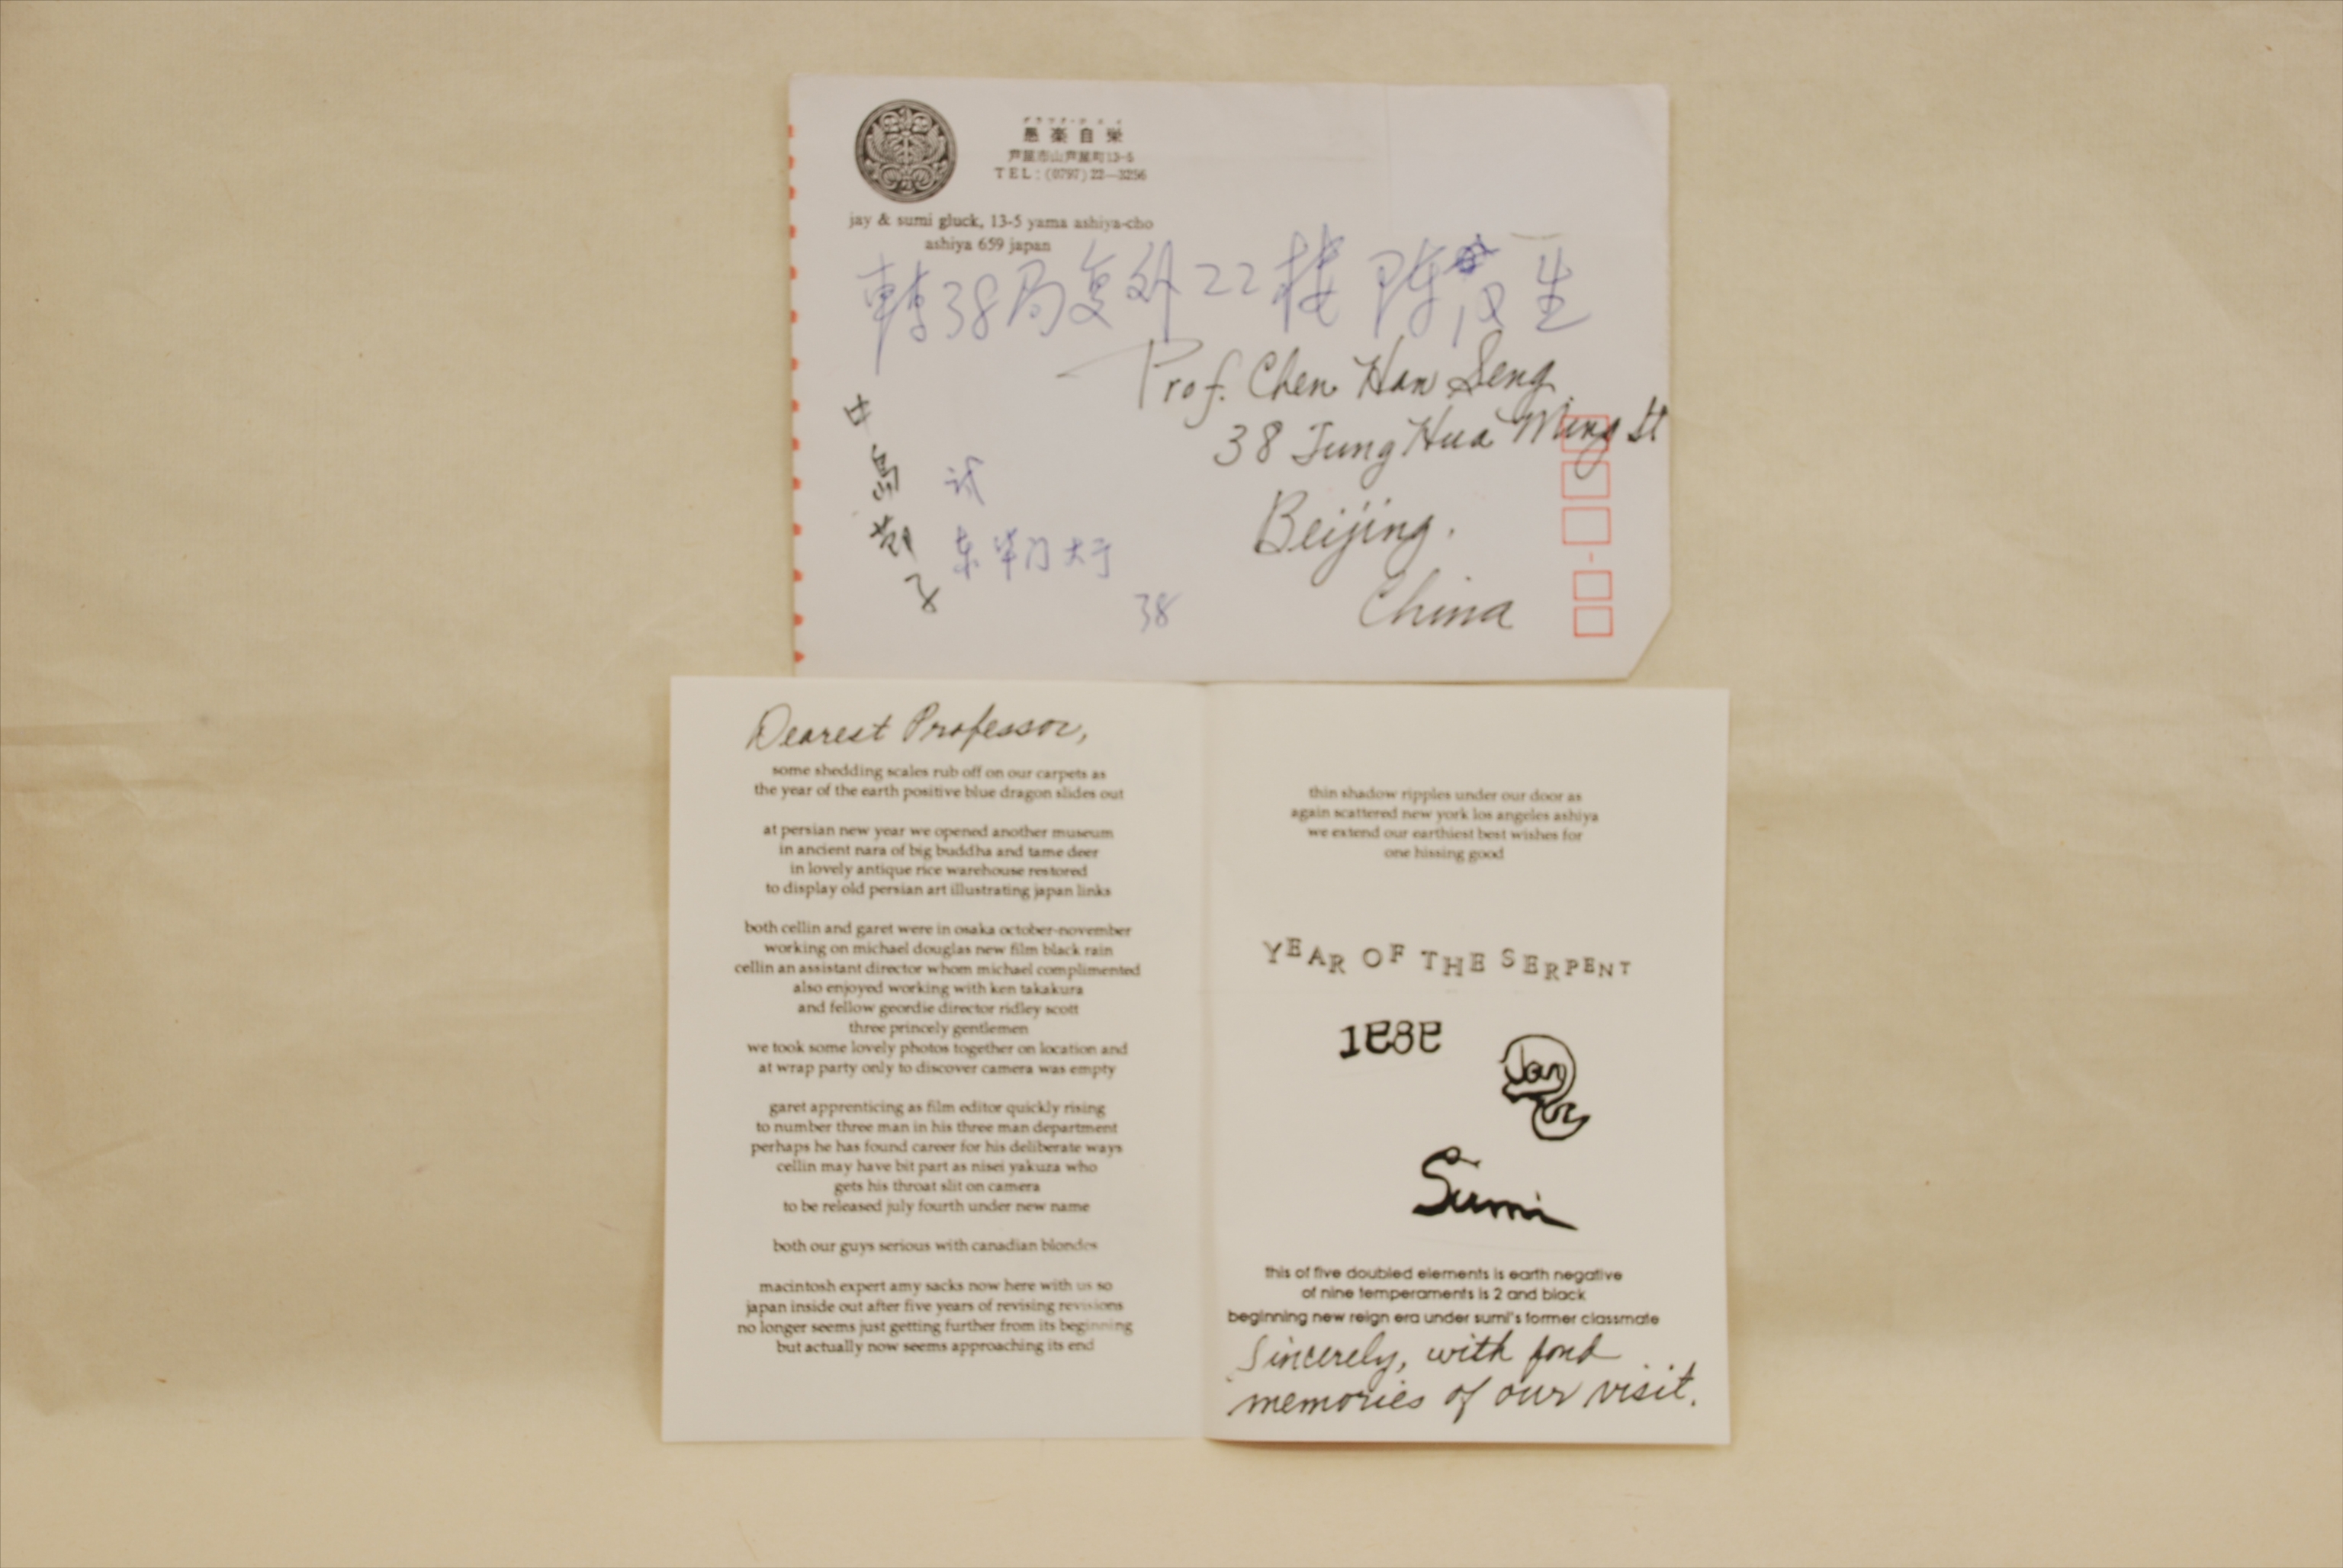 グラック・ジェイ
愚楽自栄
芦屋市山芦屋町13-5
TEL:(0797)22-3256
jay & sumi gluck, 13-5 yama ashiya-cho
ashiya 659 japan
轉38局复外22楼 陈汉生
Prof. Chen Han Seng
38 Tung Hua Ming St
Beijing.
China
试
东华门大于
38
Dearest Professor,
some shedding scales rub off on our carpets as
the year of the earth positive blue dragon slides out
at persian new year we opened another museum
in ancient nara of big buddha and tame deer
in lovely antique rice warehouse restored
to display old persian art illustrating japan links
both cellin and garet were in osaka october-november
working on michael douglas new film black rain
cellin an assistant director whom michael complimented
also enjoyed working with ken takakura
and fellow geordie director ridley scott
three princely gentlemen
we took some lovely photos together on location and
at wrap party only to discover camera was empty
garet apprenticing as film editor quickly rising
to number three man in his three man department
perhaps he has found career for his deliberate ways
cellin may have bit part as nisei yakuza who
gets his throat slit on camera
to be released july fourth under new name
both our guys serious with canadian blondes
macintosh expert amy sacks now here with us so
japan inside out after five years of revising revisions
no longer seems just getting further from its beginning
but actually now seems approaching its end
thin shadow ripples under our door as
again scattered new york los angeles ashiya
we extend our earthiest best wishes for
one hissing good
YEAR OF THE SERPENT
1989
Jay
Sumi
this of five doubled elements is earth negative
of nine temperaments is 2 and black
beginning new reign era under sumi's former classmate
Sincerely, with fond
memories of our visit.